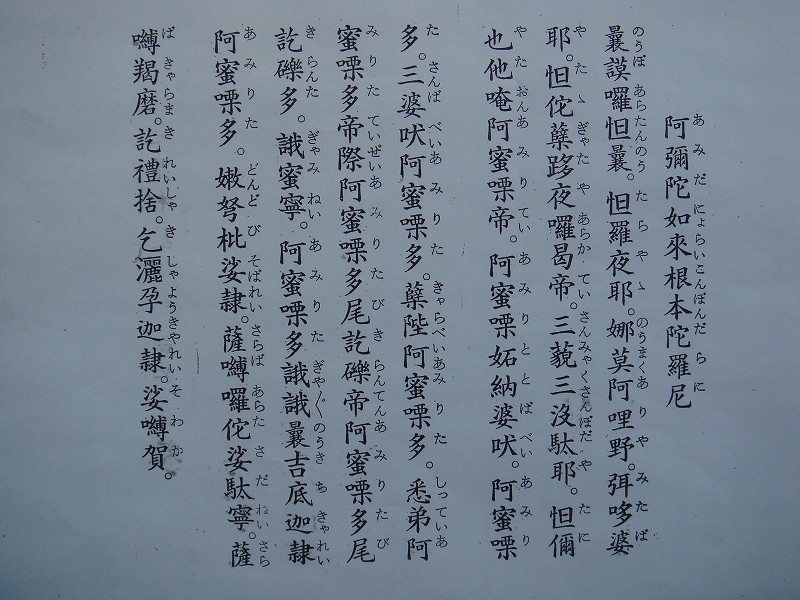 あみだにょらいこんぽんだらに
阿彌陀如來根本陀羅尼
のうぼあらたんのう。たらやゝのうまくありやみたば
曩謨囉怛曩。怛羅夜耶。娜莫阿哩野。弭哆婆
やたゝぎゃたやあらかていさんみゃくさんぼだやたに
耶。怛佗蘖跢夜囉曷帝。三藐三沒駄耶。怛儞
やたおんあみりていあみりととばべいあみり
也他唵阿蜜㗚帝。阿蜜㗚妬納婆吠。阿蜜㗚
たさんばべいあみりたきゃらべいあみりたしっていあ
多。三婆吠阿蜜㗚多。蘖陛阿蜜㗚多。悉弟阿
みりたていぜいあみりたびきらんてんあみりたび
蜜㗚多帝際阿蜜㗚多尾訖礰帝阿蜜㗚多尾
きらんたぎゃみねいあみりたぎゃ〱のうきちきゃれい
訖礰多。誐蜜寧。阿蜜㗚多誐誐曩吉底迦隷
あみりたどんどびそばれいさらばあらたさだねいさら
阿蜜㗚多。嫩弩枇娑隷。薩嚩囉佗娑駄寧。薩
ばきゃらまきれいしゃきしゃようきやれいそわか
嚩羯磨。訖禮捨。乞灑孕迦隷。娑嚩賀。